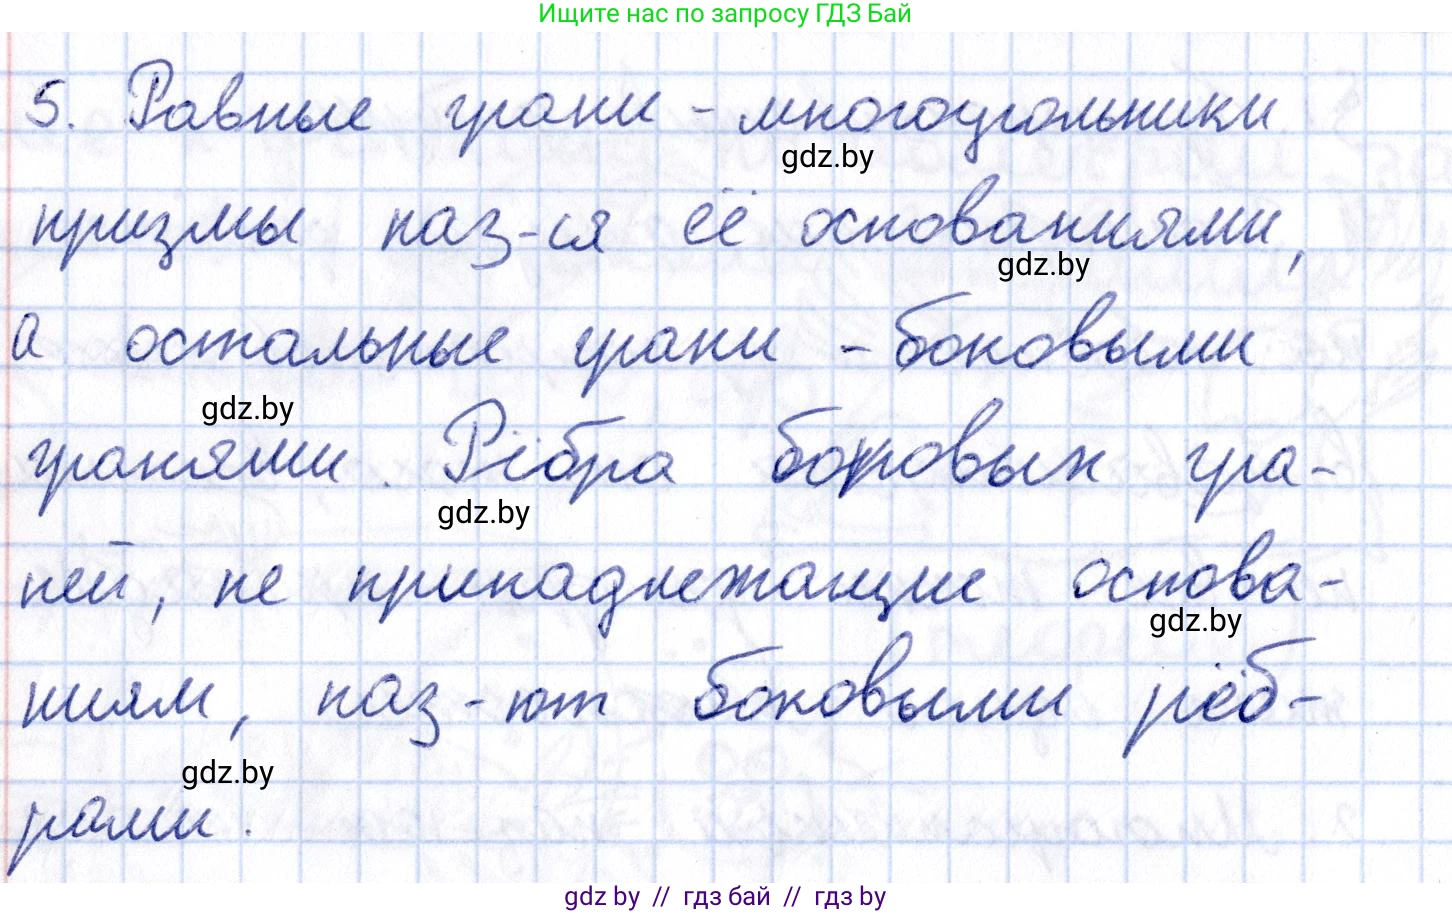 Ищите нас по запросу ГДЗ Бай
5. Равные грани - многоугольники
gdz.by
призмы наз-ся её основаниями,
gdz.by
а остальные грани - боковыми
gdz.by
гранями. Рёбра боковых гра-
gdz.by
ней, не принадлежащие основа-
gdz.by
ниям, наз-ют боковыми рёб-
gdz.by
рами.
gdz by // гдз бай // гдз by